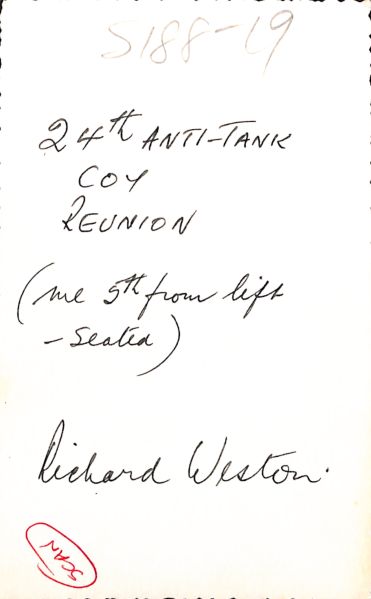 S188-19
24th ANTI-TANK
COY
REUNION
(me 5th from left
- Seated)
Richard Weston.
SCAN